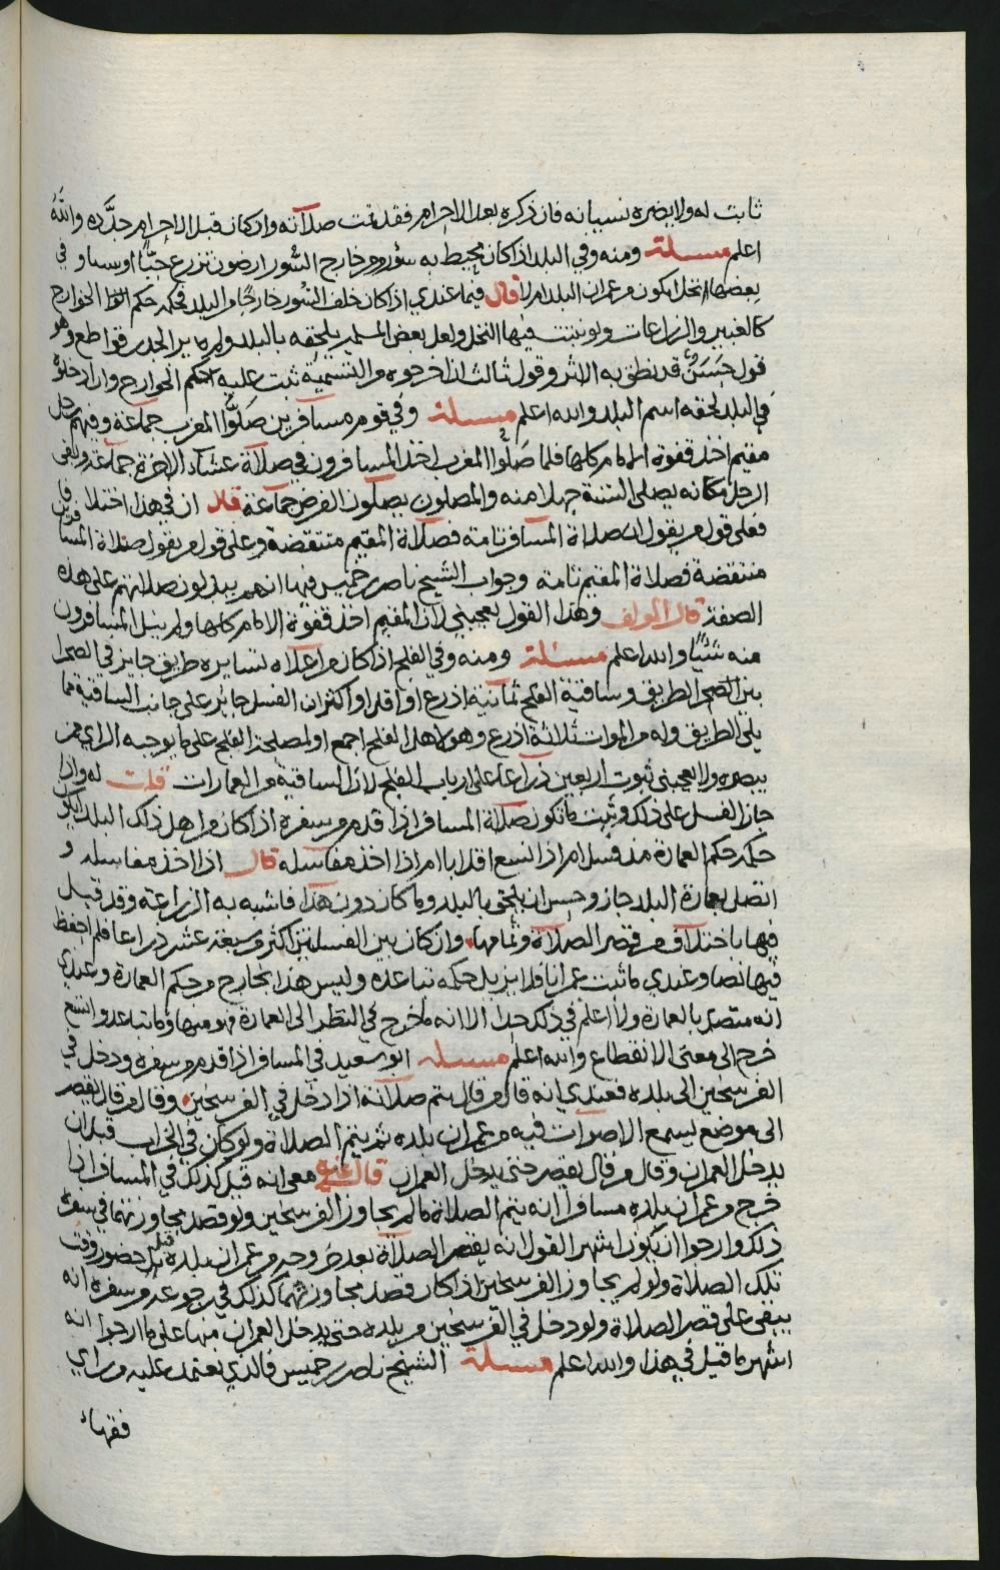 ثابت له ولا يضره نسيانه فان ذكره بعد الاحرام فقد تمت صلاته وان كان قبل الاحرام جدده والله
اعلم مسئلة ومنه وفي البلد اذا كان محيط به سور ومن خارج السور ارضون تزرع حبا او سيما وفي
بعضها نخل ايكون من عمران البلد ام لا قال فيما عندي اذا كان خلف السور خارجا من البلد فحكمه حكم الخوارج
كالغبير والزراعات ولو نبتت فيها النخل ولعل بعض المسلمين يلحقه بالبلد ولم ير الجدر قواطع وهو
قول حسن قد نطق به الاثر وقول ثالث ان اخرجوه من التسمية ثبت عليه حكم الخوارج وان ادخلوه
في البلد لحقه اسم البلد والله اعلم مسئلة وفي قوم مسافرين صلوا المغرب جماعة وفيهم رجل
مقيم اخذ قفوة الامام كلها فلما صلوا المغرب اخذ المسافرون في صلاة عشاء الاخرة جماعة وبقي
الرجل مكانه يصلي السنة جهلا منه والمصلون يصلون الفرض جماعة قال ان في هذا اختلافا
فعلى قول من يقول ان صلاة المسافر تامة فصلاة المقيم منتقضة وعلى قول من يقول صلاة المسافرين
منتقضة فصلاة المقيم تامة وجواب الشيخ ناصر بن خميس فيها انهم يبدلون صلاتهم على هذه
الصفة قال المولف وهذا القول يعجبني لان المقيم اخذ قفوة الامام كلها ولم ينل المسافرون
منه شيئا والله اعلم مسئلة ومنه وفي الفلج اذا كان من اعلاه تسايره طريق جايز في الصحرا
بين الطريق وساقية الفلج ثمانية اذرع او اقل او اكثر ان الفسل جائز على جانب الساقية مما
يلي الطريق وله من الموات ثلاثة اذرع وهو لاهل الفلج اجمع او لمصلحة الفلج على ما يوجبه الراي ممن
يبصره ولا يعجبني ثبوت اربعين ذراعا على ارباب الفلج لان الساقية من العمارات قلت له وان
جاز الفسل على ذلك وثبت ما تكون صلاة المسافر اذا قدم من سفره اذا كان من اهل ذلك البلد ايكون
حكمه حكم العمارة مذ فسل ام اذا اتسع اقلابا ام اذا اخذ مفاسله قال اذا اخذ مفاسله و
اتصل بعمارة البلد جاز وحسن ان يلحق بالبلد وما كان دون هذا فاشبه به الزراعة وقد قيل
فيها باختلاف من قصر الصلاة وتمامها وان كان بين الفسلتين اكثر من سبعة عشر ذراعا فلم احفظ
فيها نصا وعندي ما ثبت عمرانا فلا يزيل حكمه تباعده وليس هذا بخارج من حكم العمارة وعندي
انه متصل بالعمارة ولا اعلم في ذلك حدا الا انه ما خرج في النظر الى العمارة فهو منها وما تباعد واتسع
خرج الى معنى الانقطاع والله اعلم مسئلة ابو سعيد في المسافر اذا قدم من سفره ودخل في
الفرسخين الى بلده فعندي انه قال من قال يتم صلاته اذا دخل في الفرسخين وقال من قال يقصر
الى موضع يسمع الاصوات فيه من عمران بلده ثم يتم الصلاة ولو كان في الخراب قبل ان
يدخل العمران وقال من قال يقصر حتى يدخل العمران قال غيره معي انه قيل كذلك في المسافر اذا
خرج من عمران بلده مسافرا انه يتم الصلاة ما لم يجاوز الفرسخين ولو قصد مجاوزتهما في سفره
ذلك وارجوا ان يكون اشهر القول انه يقصر الصلاة بعد خروجه من عمران بلده قبل حضور وقت
تلك الصلاة ولو لم يجاوز الفرسخين اذا كان قصد مجاوزتهما كذلك في رجوعه من سفره انه
يبقى على قصر الصلاة ولو دخل في الفرسخين من بلده حتى يدخل العمران منها على ما ارجوا انه
اشهر ما قيل في هذا والله اعلم مسئلة الشيخ ناصر بن خميس فالذي يعتمد عليه من راي
فقهاء